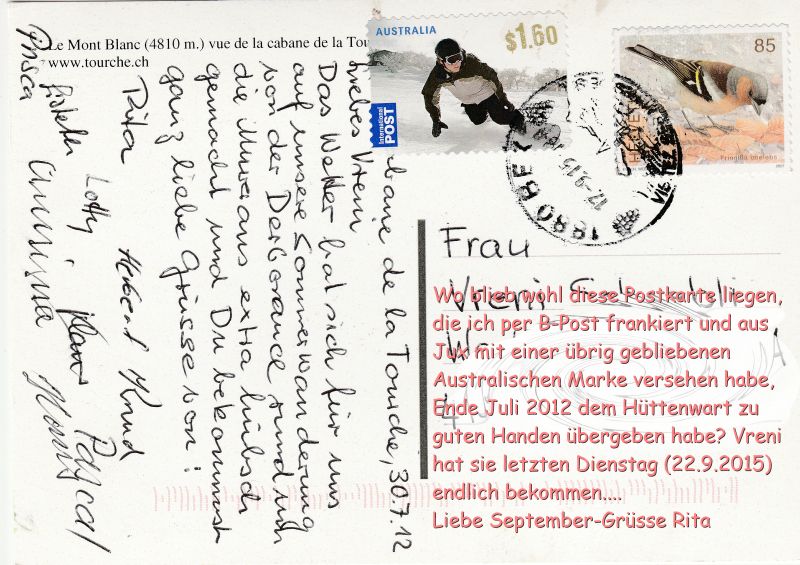 Le Mont Blanc (4810 m.) vue de la cabane de la Tou
www.tourche.ch
AUSTRALIA
$1.60
International
POST
85
HELVETIA
Fringilla coelebs
1880 BEX
17-9-15
bane de la Tourche, 30.7.12
Liebes Vreni
Das Wetter hat sich für uns
auf unsere Sommerwanderung
von der Derborance rund um
die Muverans extra hübsch
gemacht und Du bekommst
ganz liebe Grüsse von:
Rita
Herbert
Knud
Lotty
Klaus
Pascal
Prisca
Frau
Vreni
Wo blieb wohl diese Postkarte liegen,
die ich per B-Post frankiert und aus
Jux mit einer übrig gebliebenen
Australischen Marke versehen habe,
Ende Juli 2012 dem Hüttenwart zu
guten Handen übergeben habe? Vreni
hat sie letzten Dienstag (22.9.2015)
endlich bekommen....
Liebe September-Grüsse Rita